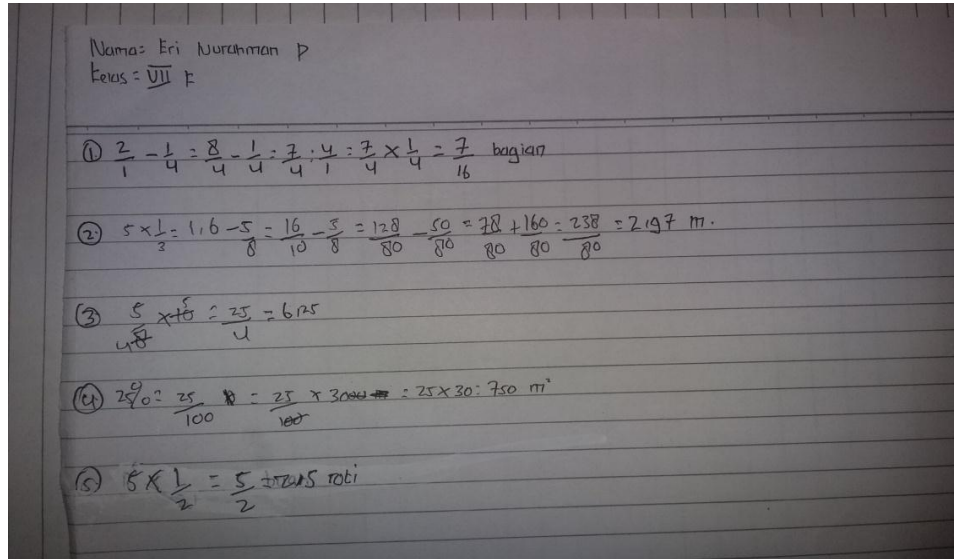 Nama: Eri Nurahman P
Kelas = VII E
① 2/1 - 1/4 = 8/4 - 1/4 = 7/4 : 4/1 = 7/4 × 1/4 = 7/16 bagian
② 5 × 1/3 = 1,6 - 5/8 = 16/10 - 5/8 = 128/80 - 50/80 = 78/80 + 160/80 = 238/80 = 2,97 m.
③ 5/8 4 × 10 5 = 25/4 = 6,25
④ 25% = 25/100 = 25/100 × 3000 = 25 × 30 : 750 m²
⑤ 5 × 1/2 = 5/2 roti